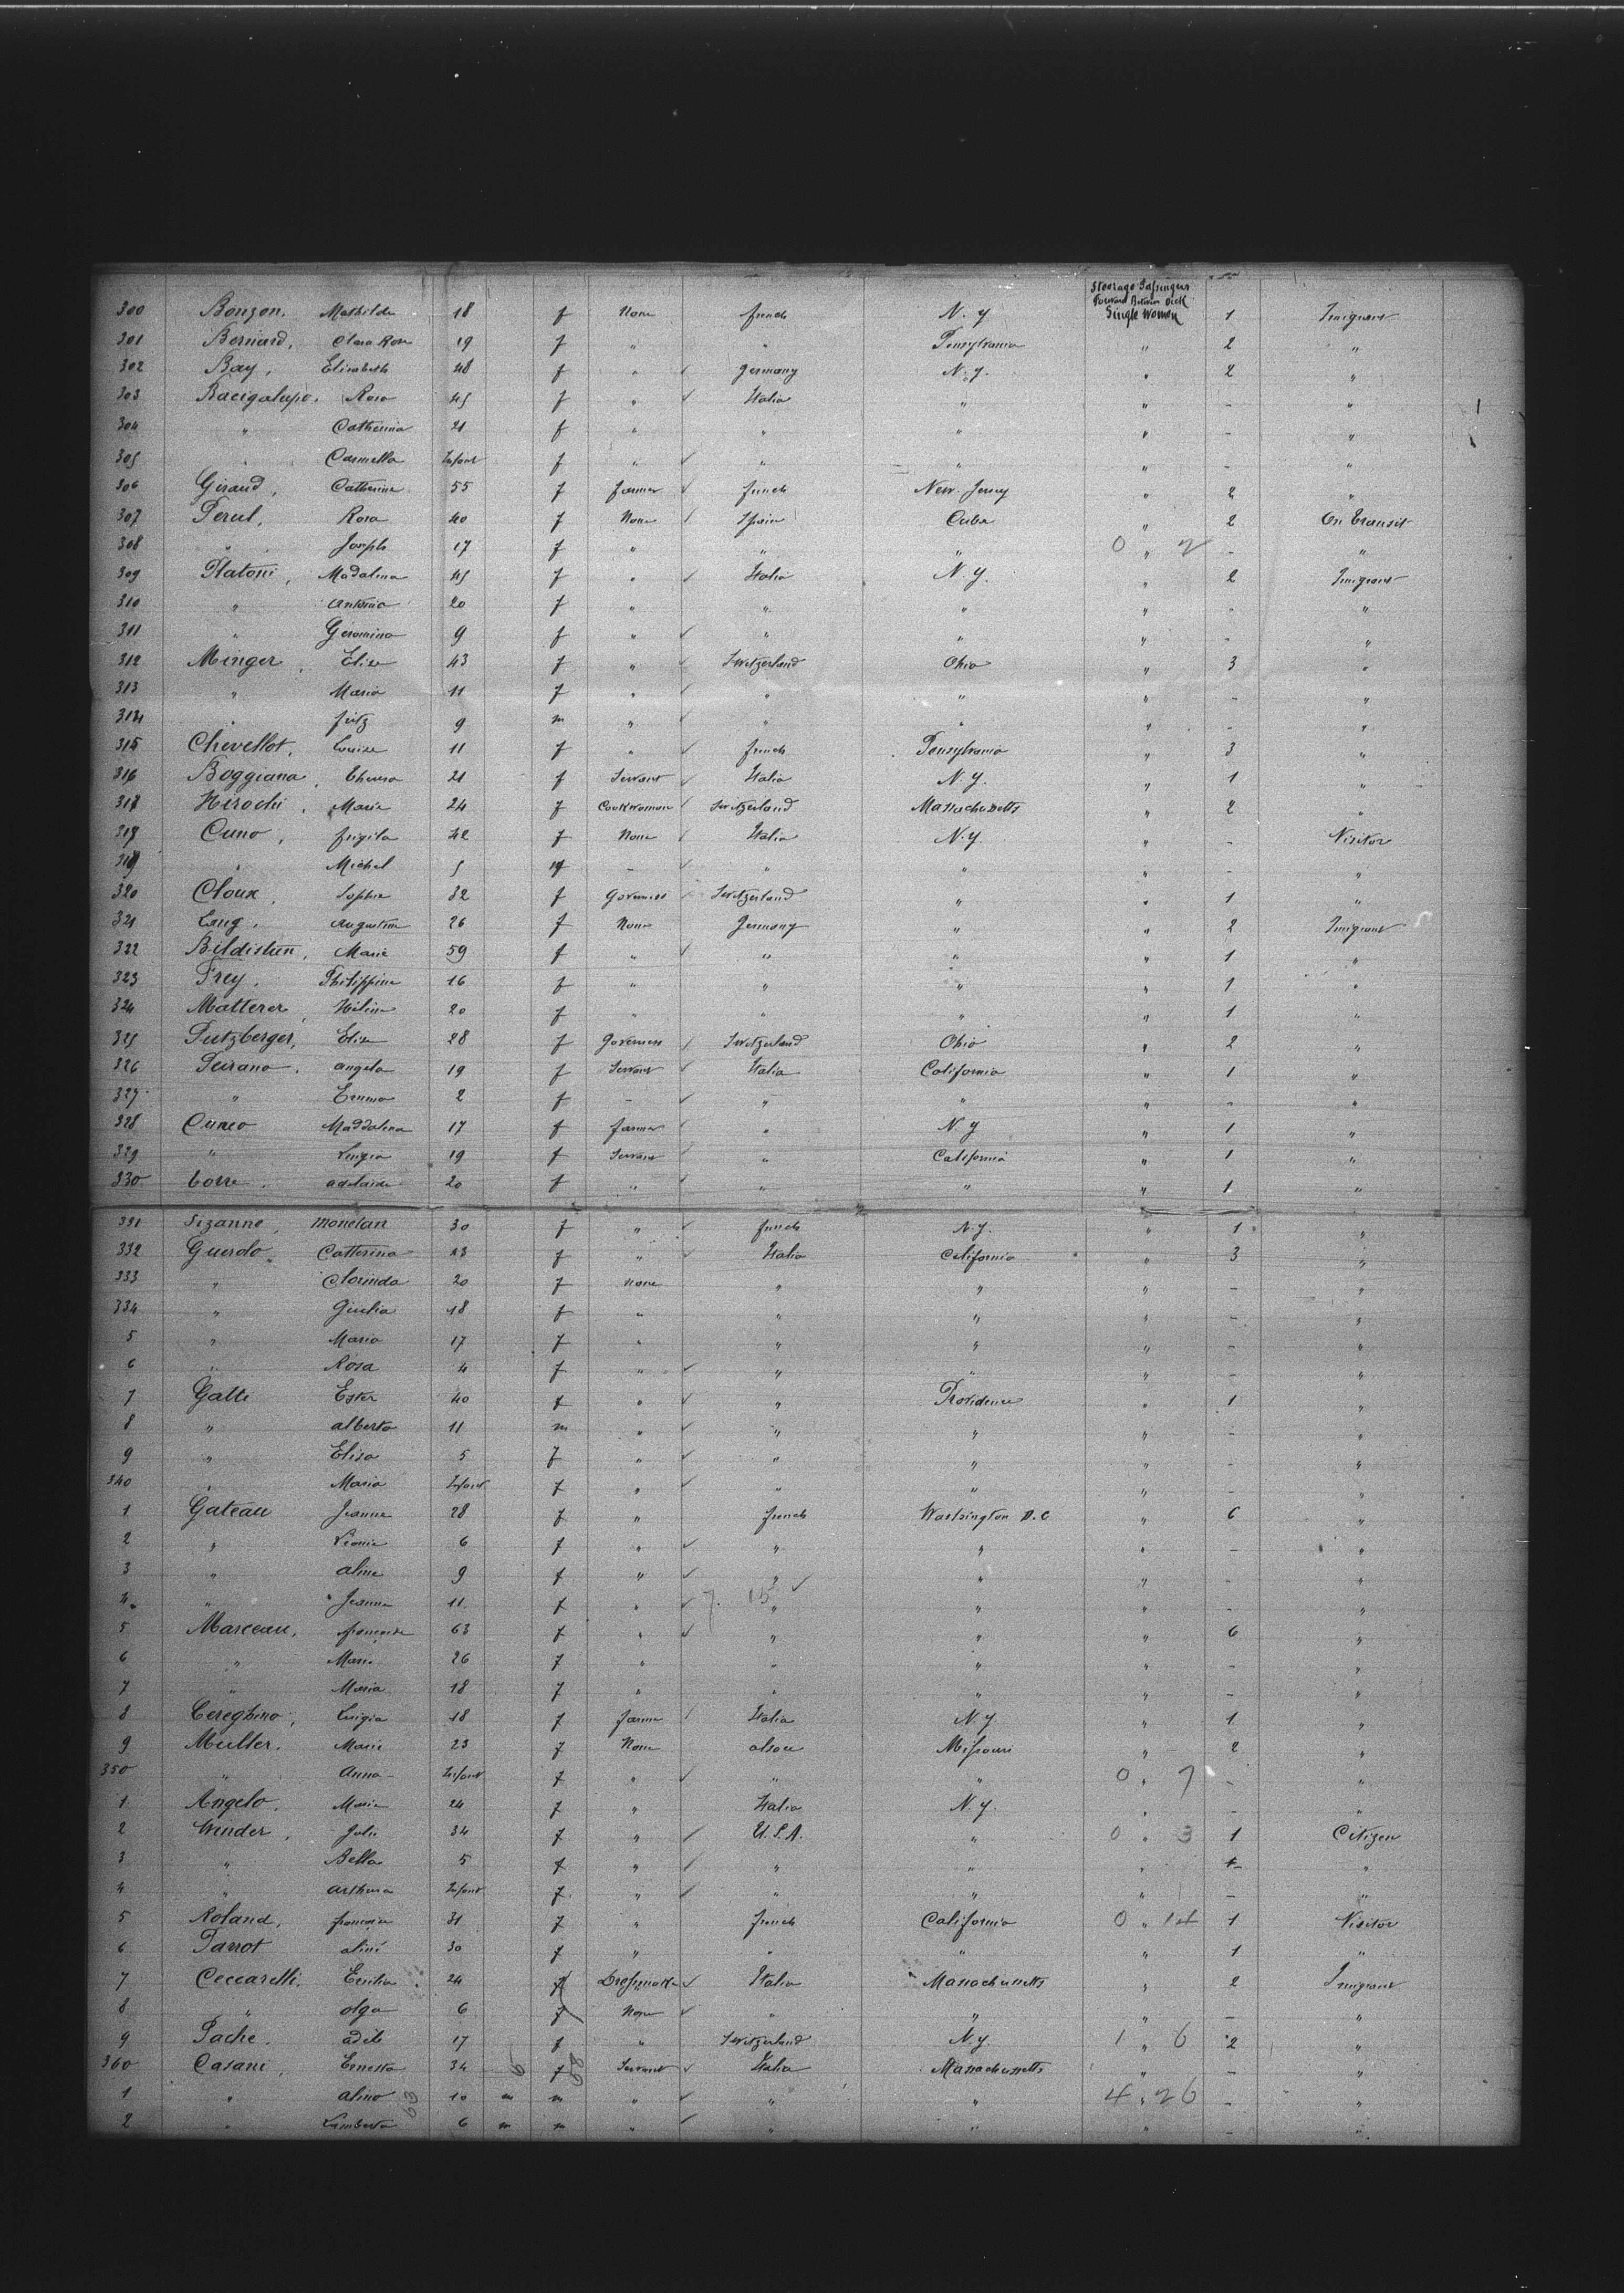 Steerage Passengers
Forward Between Deck
300 Bonzon, Mathilde 18 f None french N. Y Single Women 1 Imigrant
301 Bernard, Clara Rose 19 f " " Pensylvania " 2 "
302 Bay, Elisabeth 48 f " ✓ Germany N. Y. " 2 "
303 Bacigalupo, Rosa 45 f " ✓ Italia " " - "
304 " Catherina 21 f " " " " - "
305 " Carmella Infant f " ✓ " " " - "
306 Giraud, Catherine 55 f farmer ✓ french New Jersey " 2 "
307 Perul, Rosa 40 f None ✓ Spain Cuba " 2 On Transit
308 " Joseph 17 f " " " 0 " 2 - "
309 Platoni, Madalina 45 f " ✓ Italia N. Y. " 2 Imigrant
310 " Antonia 20 f " " " " - "
311 " Geromina 9 f " ✓ " " " - "
312 Minger, Elise 43 f " ✓ Switzerland Ohio " 3 "
313 " Maria 11 f " ✓ " " " - "
314 " fritz 9 m " ✓ " " " - "
315 Chevellot, Louise 11 f " ✓ french Pensylvania " 3 "
316 Boggiana, 21 f Servant ✓ Italia N. Y. " 1 "
318 Hirochi, Marie 24 f Cookwoman ✓ Switzerland Massachusetts " 2 "
319 Cuno, 42 f None ✓ Italia N. Y. " - Visitor
319 " Michel 5 - ✓ " " " - "
320 Cloux, Sophie 32 f Governess ✓ Switzerland " " 1 "
321 Lang, Augustine 26 f None Germany " " 2 Imigrant
322 Marie 59 f " ✓ " " " 1 "
323 Frey, Philippine 16 f " " " " 1 "
324 Matterer, Hélène 20 f " " " " 1 "
325 Putzberger, Elise 28 f Governess ✓ Switzerland Ohio " 2 "
326 Peirano, angela 19 f Servant ✓ Italia California " 1 "
327 " Emma 2 f - ✓ " " " - "
328 Cuneo Maddalena 17 f farmer ✓ " N. Y " 1 "
329 " Luigia 19 f Servant ✓ " California " 1 "
330 Corre, adelaide 20 f " ✓ " " " 1 "
331 Sizanne, Monetan 30 f " ✓ french N. Y. " 1 "
332 Guerdo, Catterina 43 f " ✓ Italia California " 3 "
333 " Clorinda 20 f none " " " - "
334 " Giulia 18 f " " " " - "
5 " Maria 17 f " " " " - "
6 " Rosa 4 f " ✓ " " " - "
7 Galli Ester 40 f " ✓ " Providence " 1 "
8 " alberto 11 m " ✓ " " " - "
9 " Elisa 5 f " ✓ " " " - "
340 " Maria Infant f " ✓ " " " - "
1 Gateau Jeanne 28 f " french Washington D.C " 6 "
2 " Leonie 6 f " ✓ " " " - "
3 " aline 9 f " ✓ " ✓ " " - "
4 " Jeanne 11 f " ✓ 7. 15 " " " - "
5 Marceau, françoise 63 f " ✓ " " " 6 "
6 " Marie 26 f " " " " - "
7 " Maria 18 f " " " " - "
8 Cereghino, Luigia 18 f farmer ✓ Italia N. Y. " 1 "
9 Muller, Marie 23 f None alsace Missouri " 2 "
350 " Anna Infant f " ✓ " " 0 " 7 - "
1 Angelo, Maria 24 f " Italia N. Y. " - "
2 Winder, Julie 34 f " ✓ U.S.A. " 0 " 3 1 Citizen
3 " Bella 5 f " ✓ " " " "
4 " arthura Infant f " ✓ " " " - "
5 Roland, françoise 31 f " french California 0 " 14 1 Visitor
6 Parrot aline 30 f " " " " 1 "
7 Ceccarelli, Emilia 24 f Dressmaker ✓ Italia Massachussetts " 2 Imigrant
8 " olga 6 f None ✓ " " " - "
9 Pache, adèle 17 f " Switzerland N. Y. 1 " 6 2 "
360 Casani, Ernesta 34 6 f 68 Servant ✓ Italia Massachussetts " - "
1 " alino 10 m m " ✓ " " 4 " 26 - "
2 " Lamberto 6 m m " ✓ " " " - "
63